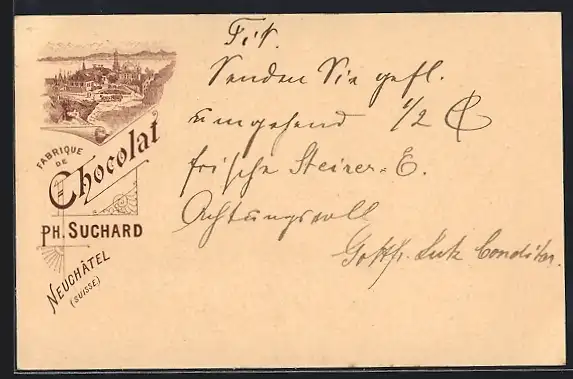 FABRIQUE
DE
Chocolat
PH. SUCHARD
NEUCHÂTEL
(SUISSE)
Senden Sie gefl.
umgehend 1/2
frische Steirer-E.
Achtungsvoll
Gottfr. Lutz Conditor.